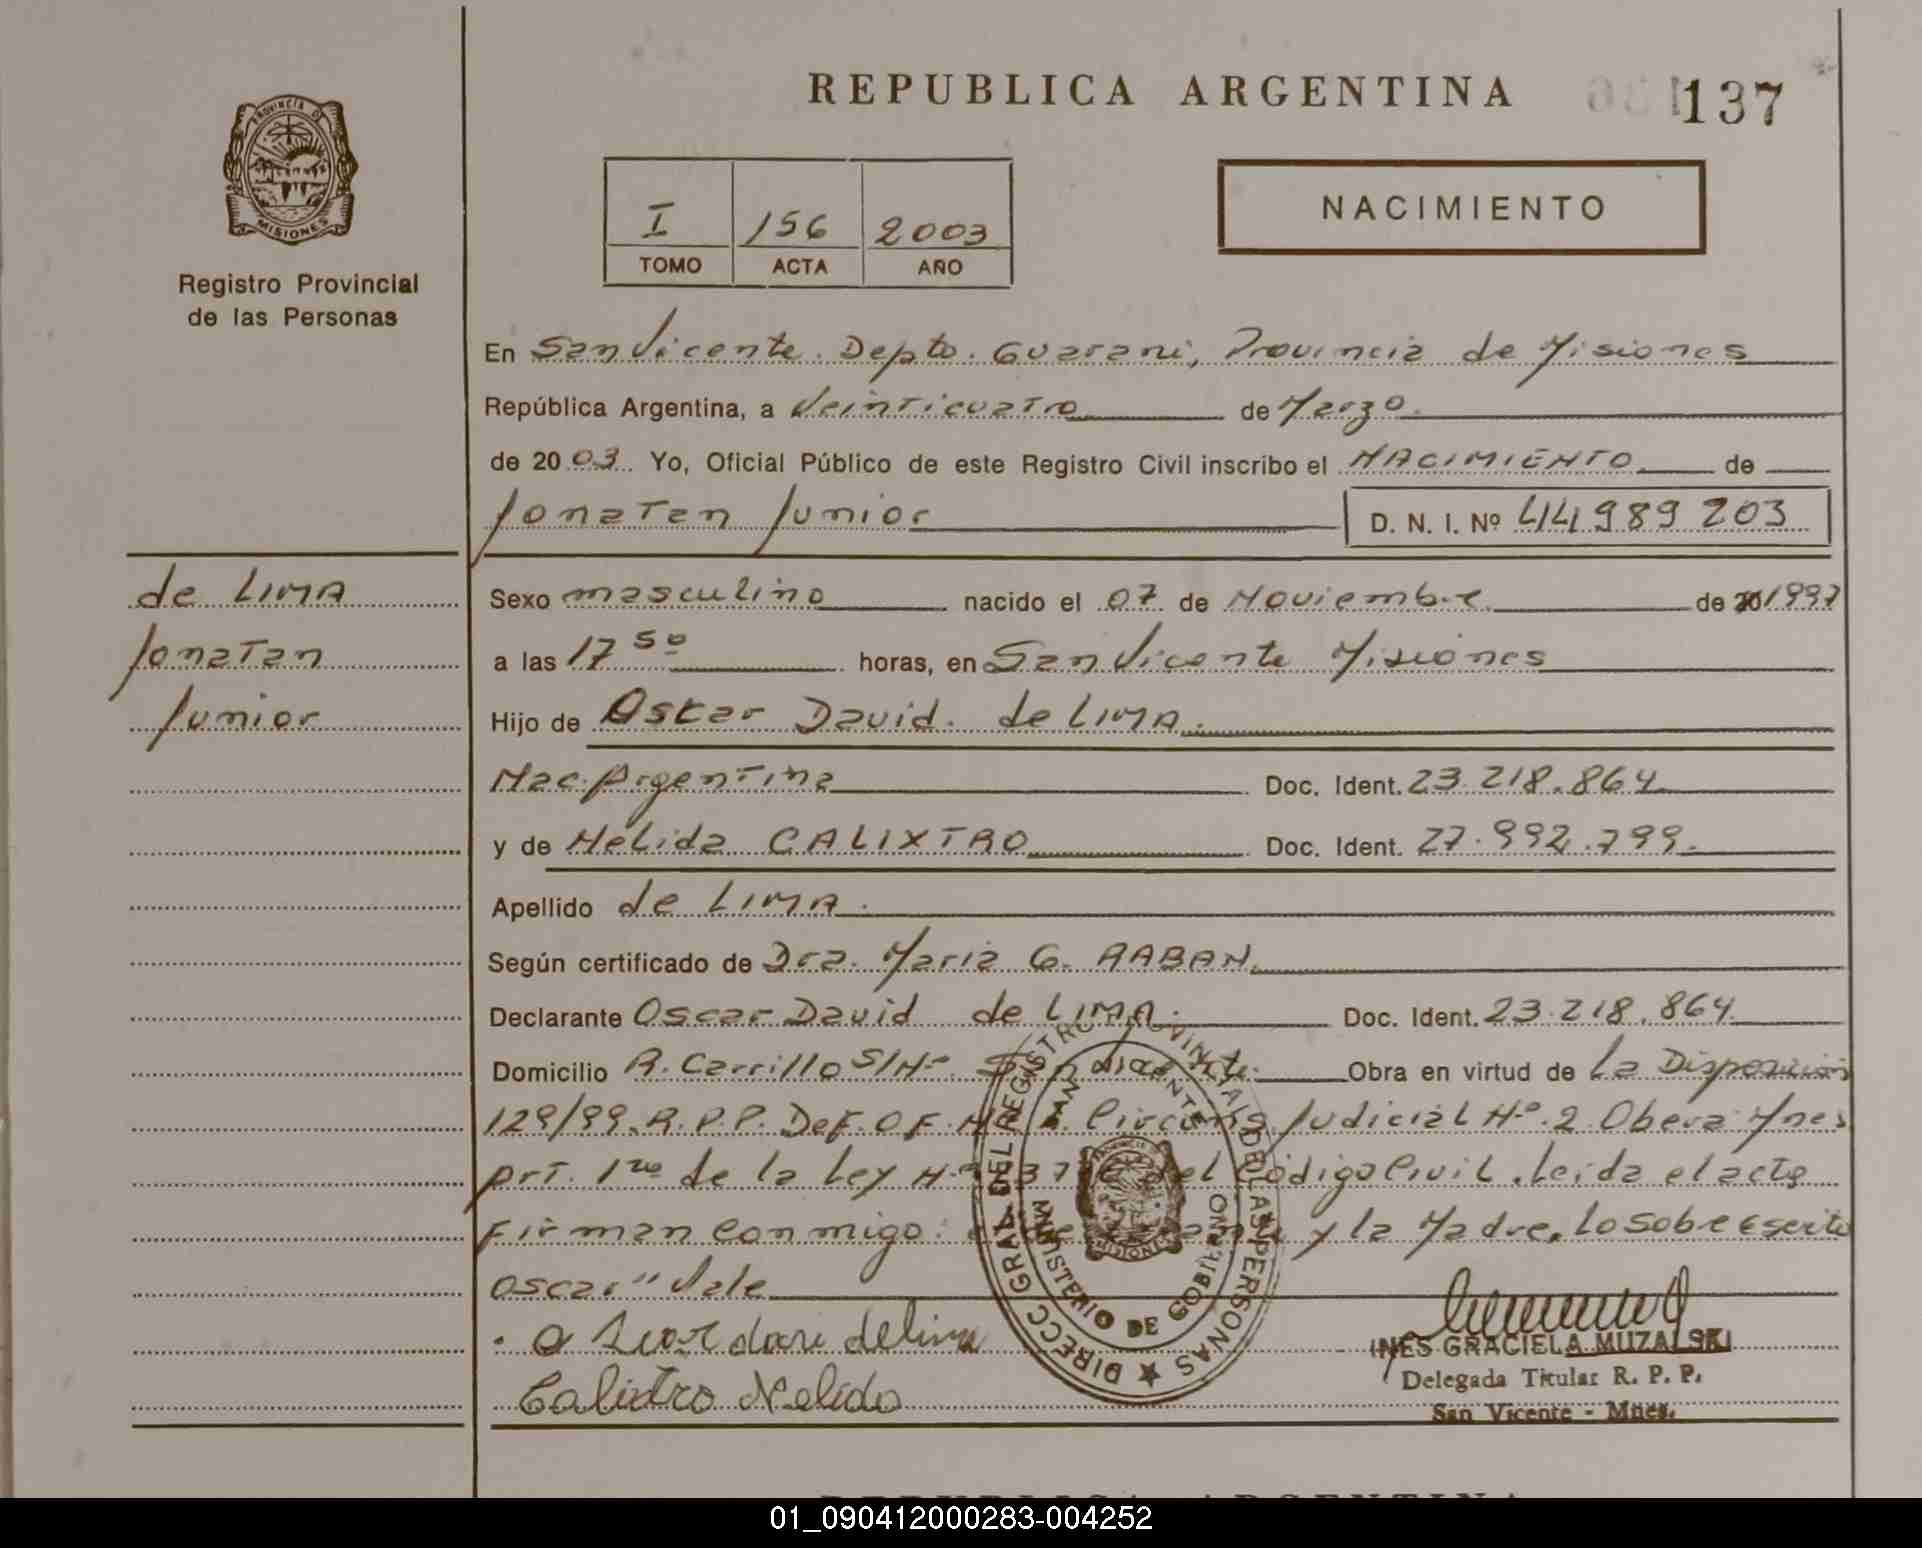 REPUBLICA ARGENTINA
137
PROVINCIA DE
MISIONES
Registro Provincial
de las Personas
I 156 2003
TOMO ACTA AÑO
NACIMIENTO
En San Vicente. Depto. Guarani, Provincia de Misiones
República Argentina, a Veinticuatro de Marzo.
de 2003. Yo, Oficial Público de este Registro Civil inscribo el NACIMIENTO de
Jonatan Junior
D. N. I. Nº 44 989 203
de LIMA
Jonatan
Junior
Sexo masculino nacido el 07 de Noviembre de 1997
a las 17 50 horas, en San Vicente Misiones
Hijo de Oscar David. de LIMA.
Nac. Argentina Doc. Ident. 23.218.864
y de Nelida CALIXTRO Doc. Ident. 27.992.799.
Apellido de LIMA.
Según certificado de Dra. Maria G. RABAN
Declarante Oscar David de LIMA. Doc. Ident. 23.218.864
Domicilio R. Carrillo S/Nº San Vicente. Obra en virtud de La Disposición
129/99. R.P.P. Def. OF. Circuns. Judicial Nº 2 Obera Mnes
art. 1ro de la Ley Nº del Código Civil. Leída el acta
Firman conmigo: y la Madre. Lo sobre escrito
Oscar" Vale
delima
Calixtro Nelida
DIRECC GRAL DEL REGISTRO PROVINCIAL DE LAS PERSONAS
SAN VICENTE
MINISTERIO DE GOBIERNO
MISIONES
INES GRACIELA MUZALSKI
Delegada Titular R. P. P.
San Vicente - Mnes.
REPUBLICA ARGENTINA
01_090412000283-004252